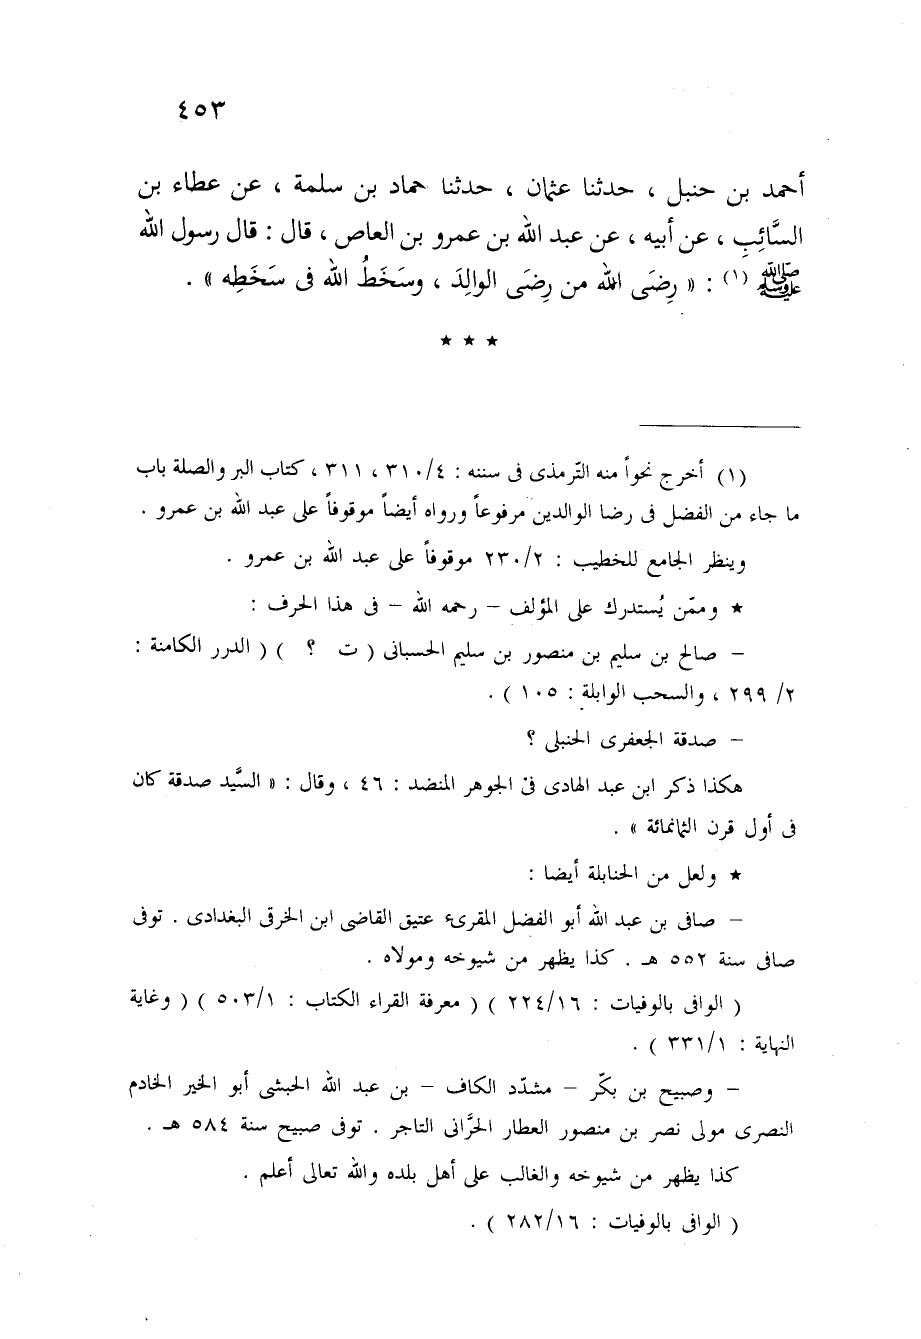 ٤٥٣
أحمد بن حنبل ، حدثنا عثمان ، حدثنا حماد بن سلمة ، عن عطاء بن
السَّائِبِ ، عن أبيه ، عن عبد الله بن عمرو بن العاص ، قال : قال رسول الله
ﷺ (١) : « رِضَى الله من رِضَى الوالِدَ ، وسَخَطُ الله فى سَخَطِه » .
★ ★ ★
(١) أخرج نحواً منه التّرمذى فى سننه : ٣١٠/٤ ، ٣١١ ، كتاب البر والصلة باب
ما جاء من الفضل فى رضا الوالدين مرفوعاً ورواه أيضاً موقوفاً على عبد الله بن عمرو .
وينظر الجامع للخطيب : ٢٣٠/٢ موقوفاً على عبد الله بن عمرو .
★ وممّن يُستدرك على المؤلف – رحمه الله – فى هذا الحرف :
– صالح بن سليم بن منصور بن سليم الحسبانى ( ت ؟ ) ( الدرر الكامنة :
٢/ ٢٩٩ ، والسحب الوابلة : ١٠٥ ) .
– صدقة الجعفرى الحنبلى ؟
هكذا ذكر ابن عبد الهادى فى الجوهر المنضد : ٤٦ ، وقال : « السيَّد صدقة كان
فى أول قرن الثمانمائة » .
★ ولعل من الحنابلة أيضا :
– صافى بن عبد الله أبو الفضل المقرىء عتيق القاضى ابن الخرقى البغدادى . توفى
صافى سنة ٥٥٢ هـ . كذا يظهر من شيوخه ومولاه .
( الوافى بالوفيات : ٢٢٤/١٦ ) ( معرفة القراء الكتاب : ٥٠٣/١ ) ( وغاية
النهاية : ٣٣١/١ ) .
– وصبيح بن بكّر – مشدّد الكاف – بن عبد الله الحبشى أبو الخير الخادم
النصرى مولى نصر بن منصور العطار الحرَّانى التاجر . توفى صبيح سنة ٥٨٤ هـ .
كذا يظهر من شيوخه والغالب على أهل بلده والله تعالى أعلم .
( الوافى بالوفيات : ٢٨٢/١٦ ) .